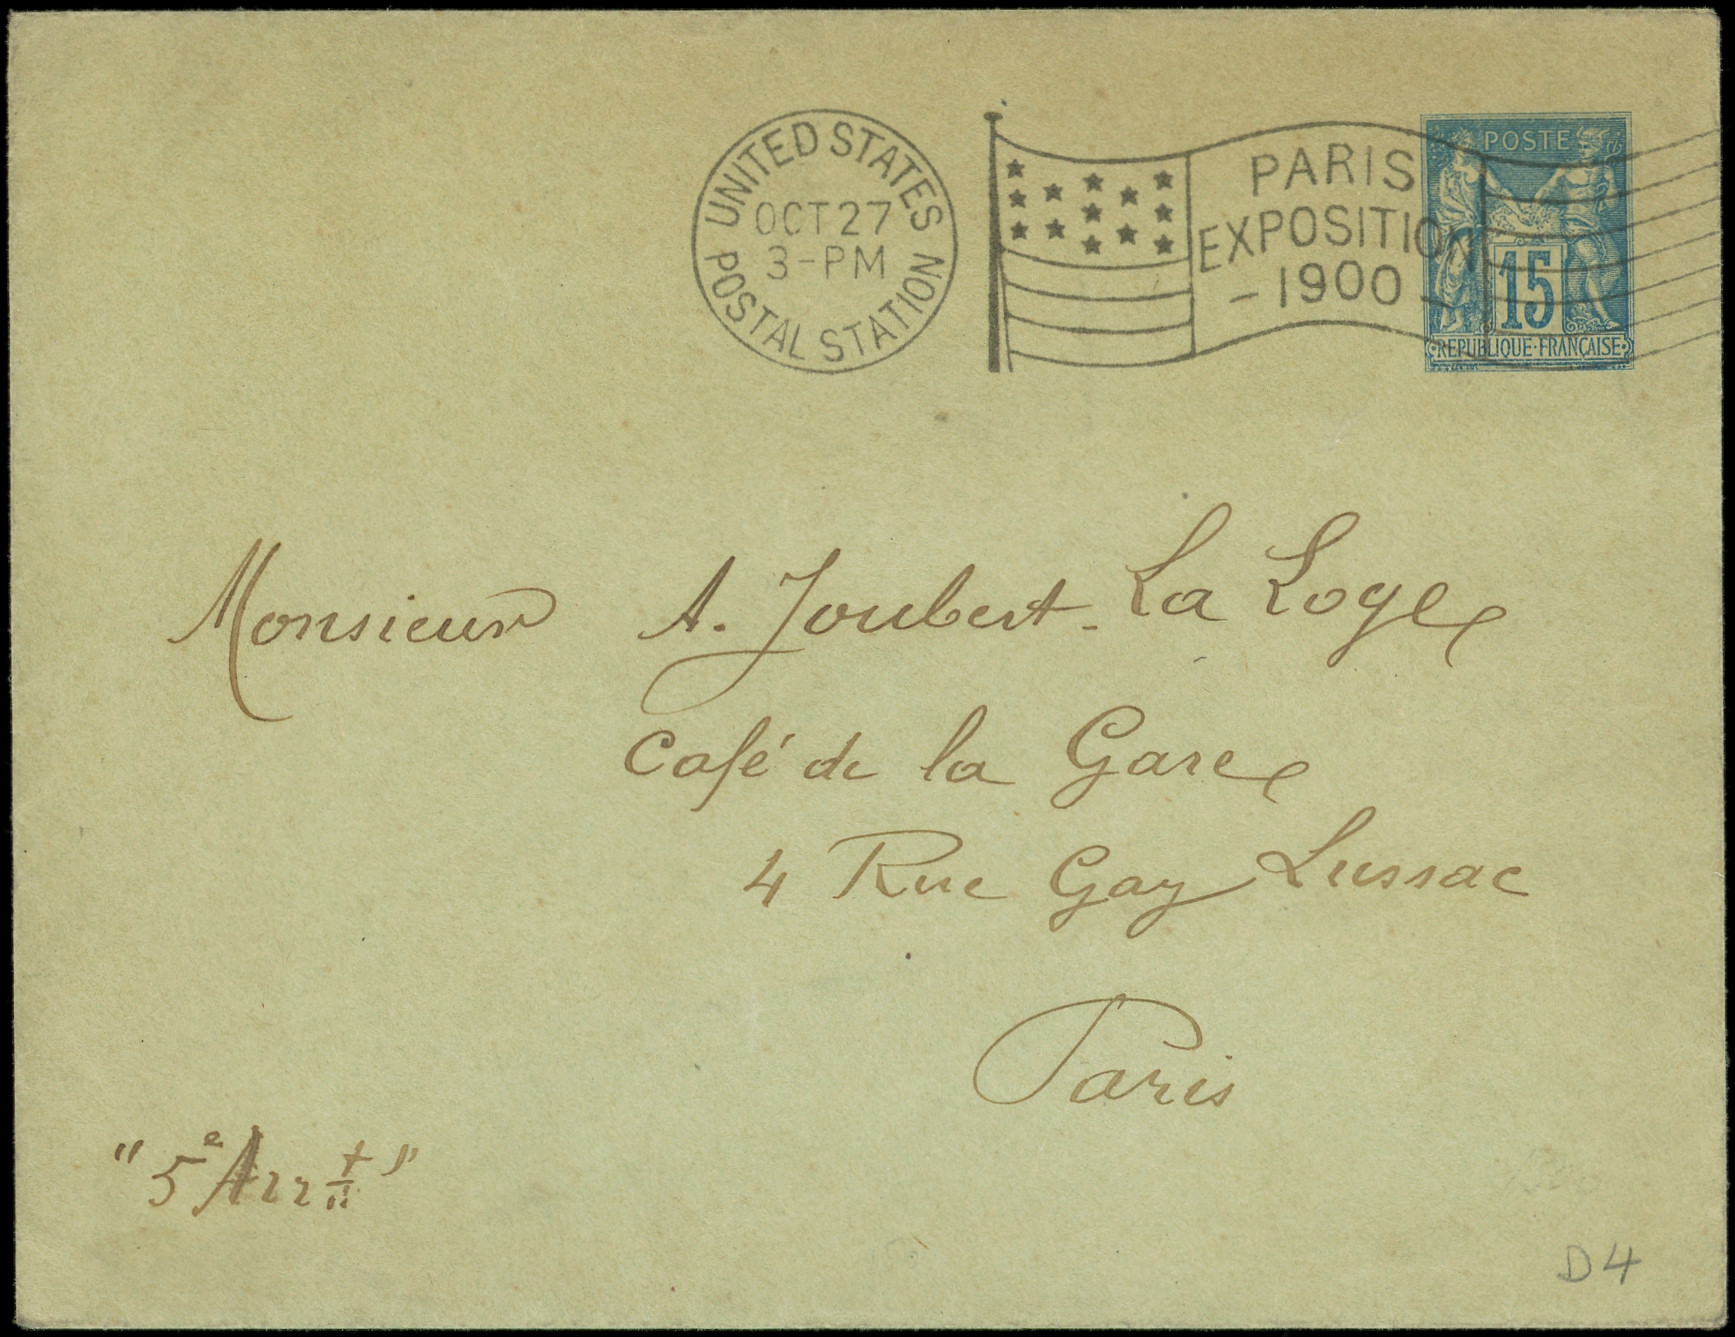 UNITED STATES
OCT 27
3-PM
POSTAL STATION
PARIS
EXPOSITION
-1900-
POSTE
15
REPUBLIQUE·FRANÇAISE
Monsieur A. Joubert-La Loge
Café de la Gare
4 Rue Gay Lussac
Paris
"5e Arrt"
D4